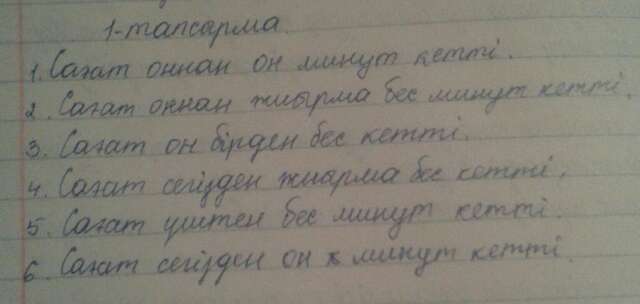 1-тапсарма.
1. Сағат оннан он минут кетті.
2. Сағат оннан жиырма бес минут кетті.
3. Сағат он бірден бес кетті.
4. Сағат сегізден жиарма бес кетті.
5. Сағат үштен бес минут кетті.
6. Сағат сегізден он минут кетті.